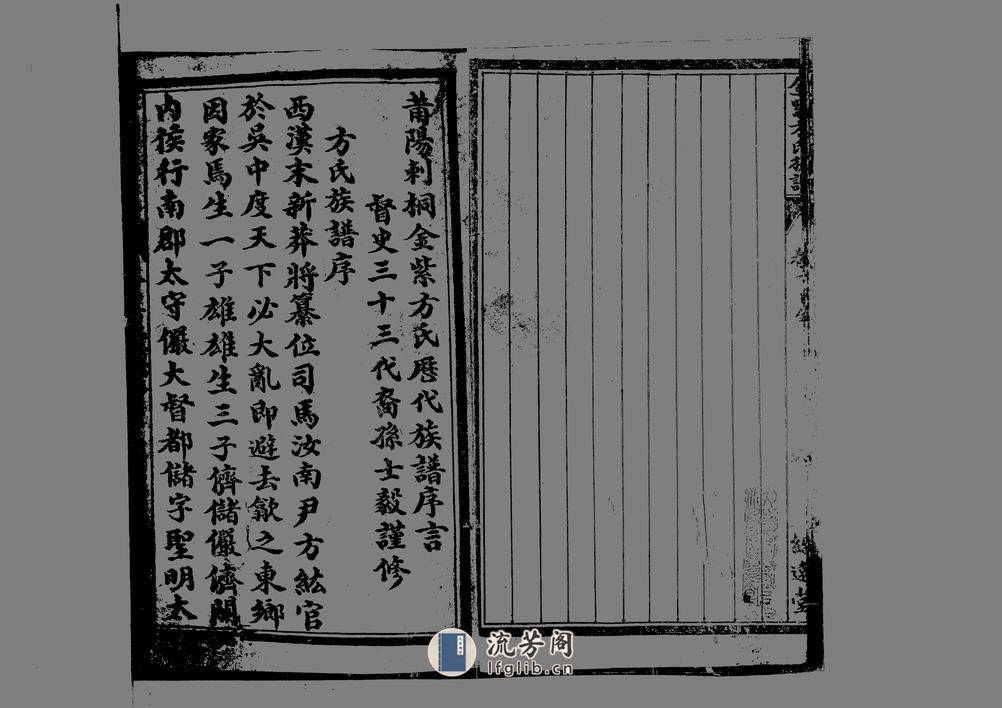 莆陽刺桐金紫方氏歷代族譜序言
督史三十三代裔孫士毅謹修
方氏族譜序
西漢末新莽將纂位司馬汝南尹方紘官
於吳中度天下必大亂即避去歙之東鄉
因家焉生一子雄雄生三子儕儲儼儕關
內侯行南郡太守儼大督都儲字聖明太
方氏族譜
流芳阁
lfglib.cn